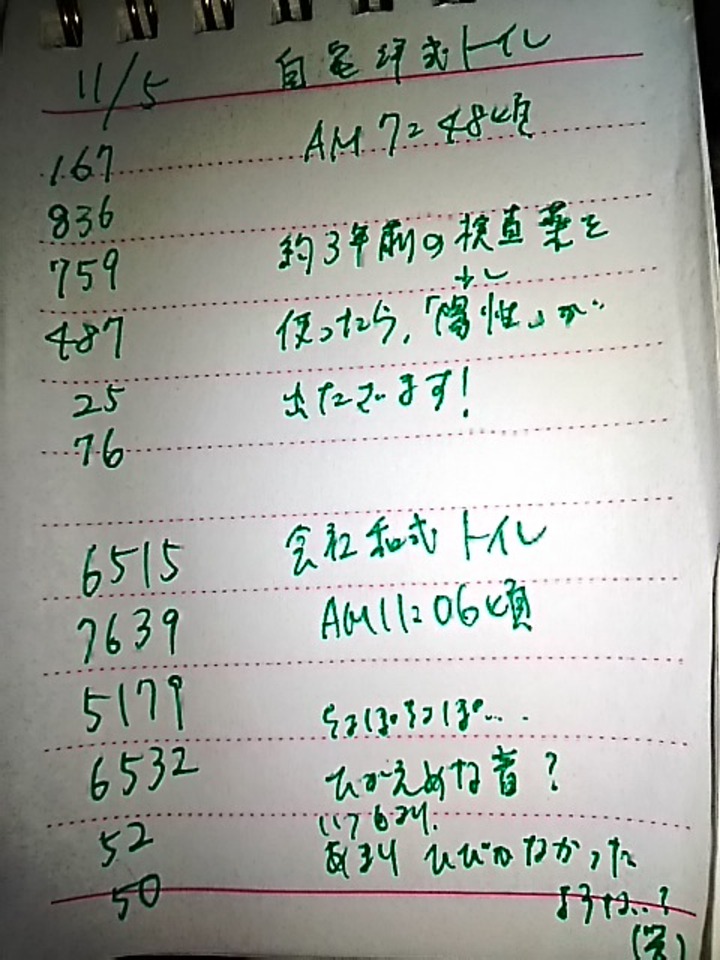 11/5 自宅洋式トイレ
167 AM 7:48頃
836
759 約3年前の検査薬を
少し
487 使ったら,「陽性」が
25 出たでます!
76
6515 会社和式トイレ
7639 AM11:06頃
5179 ちょぽちょぽ...
6532 ひかえめな音?
いつもより.
52 あまりひびかなかった
50 ような..?
(笑)